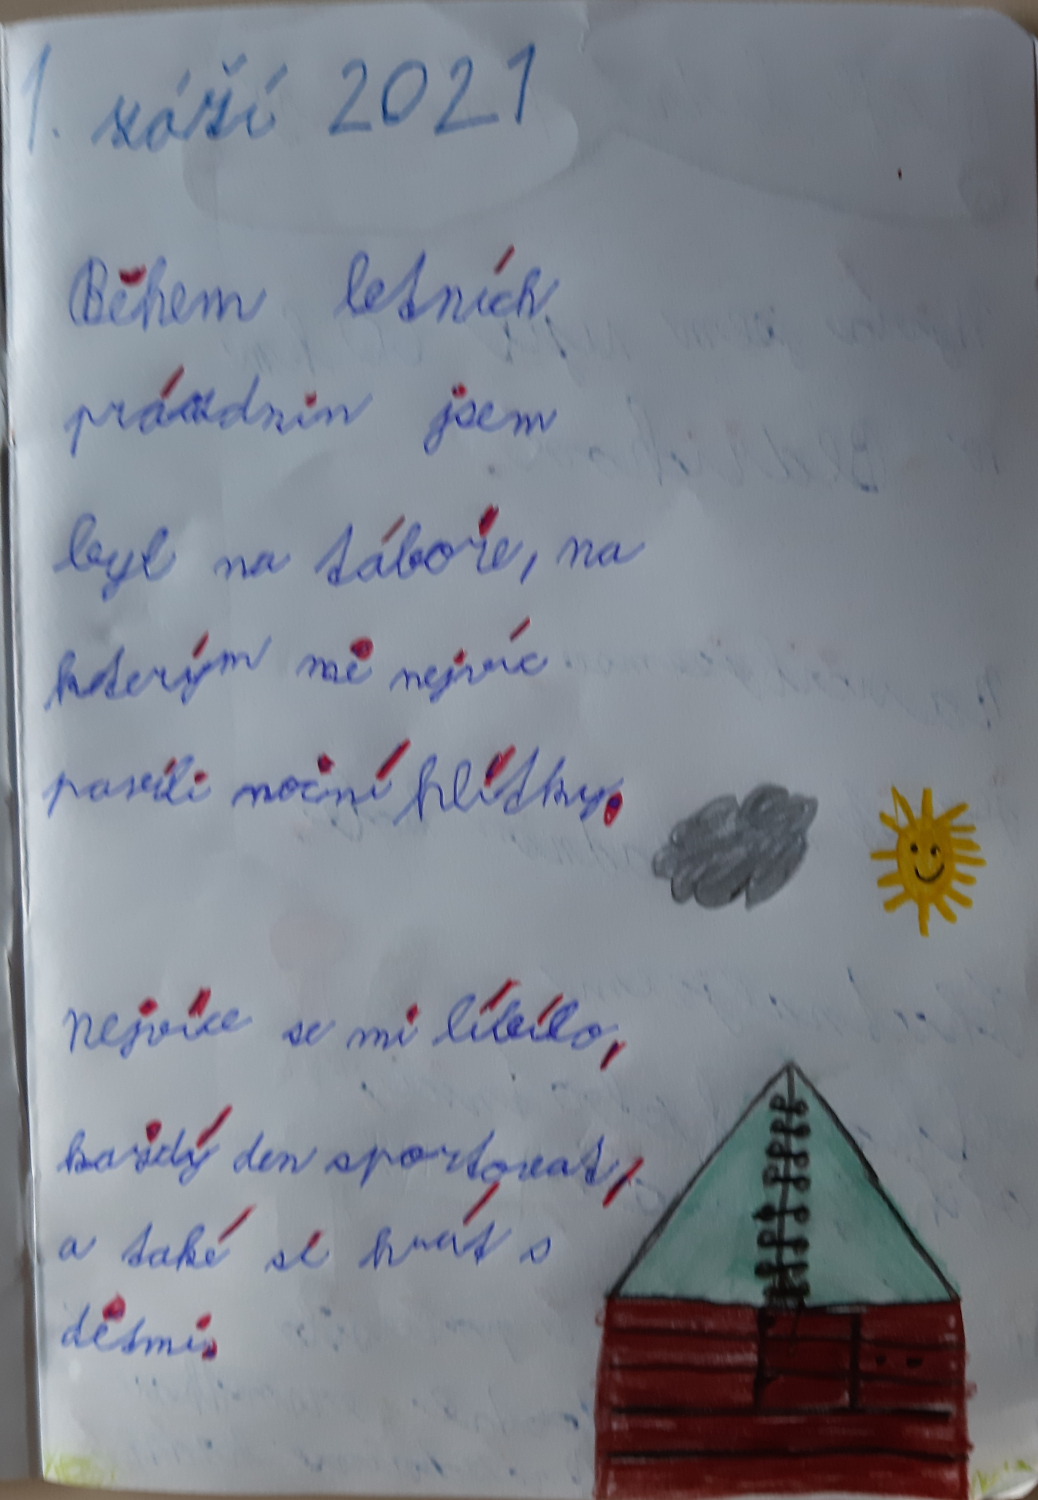 1. září 2021
Během letních
prázdnin jsem
byl na táboře, na
kterým mě nejvíc
bavili noční hlítky.
Nejvíce se mi líbílo,
každý den sportovat,
a také si hrát s
dětmi.